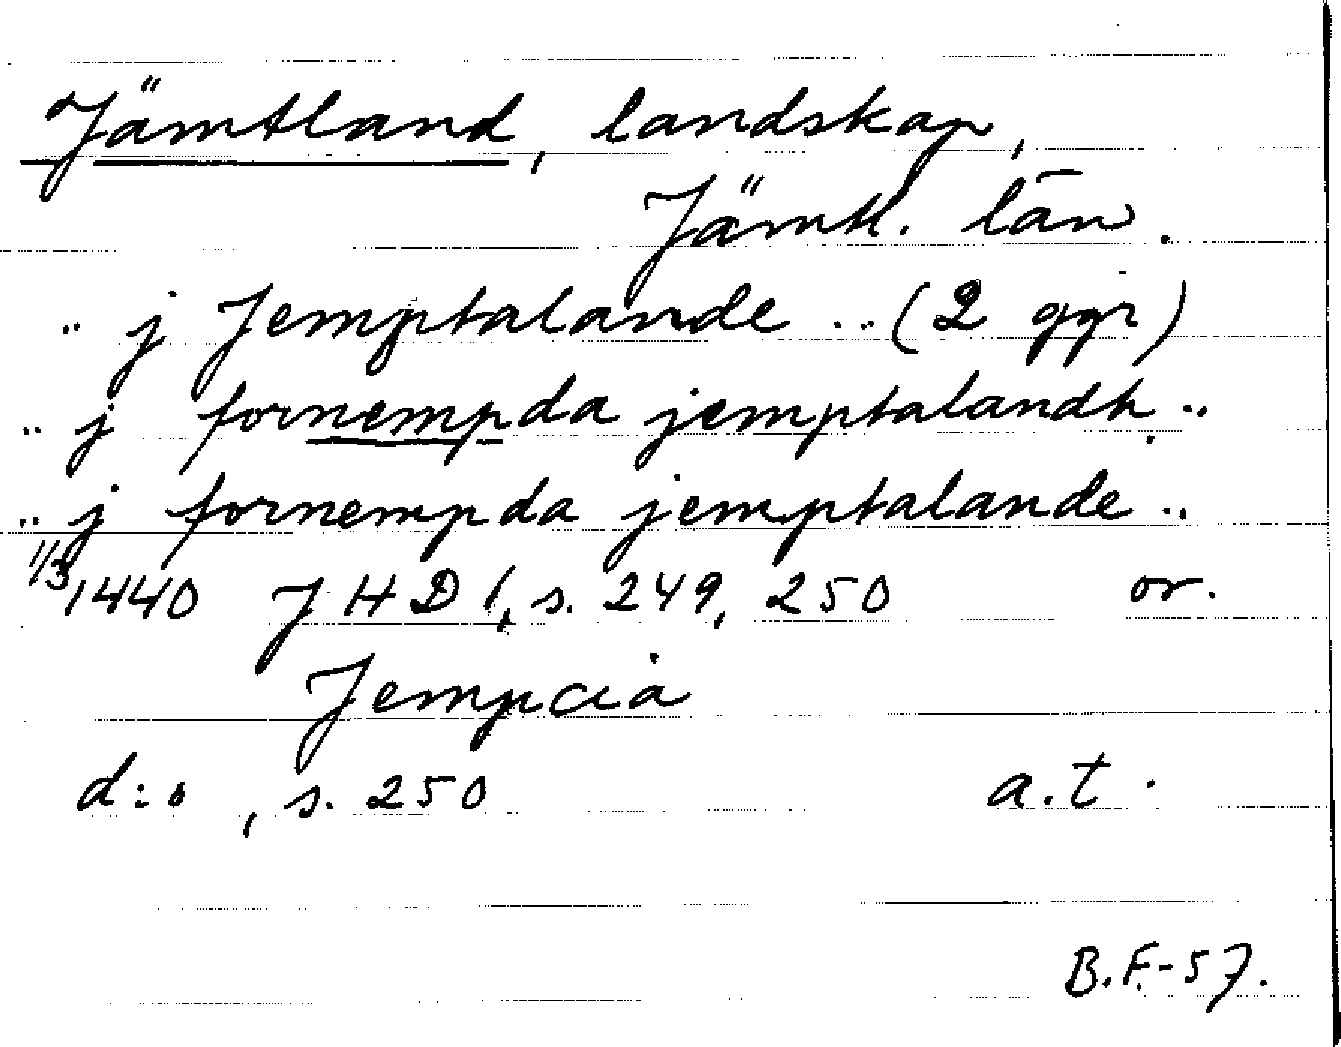 Jämtland, landskap,
Jämtl. län.
.. j Jemptalande .. (2 ggr)
.. j fornempda jemptalandh ..
.. j fornempda jemptalande ..
1/3 1440 JHD 1, s. 249, 250 or.
Jempcia
d:o, s. 250 a.t.
B.F.-57.